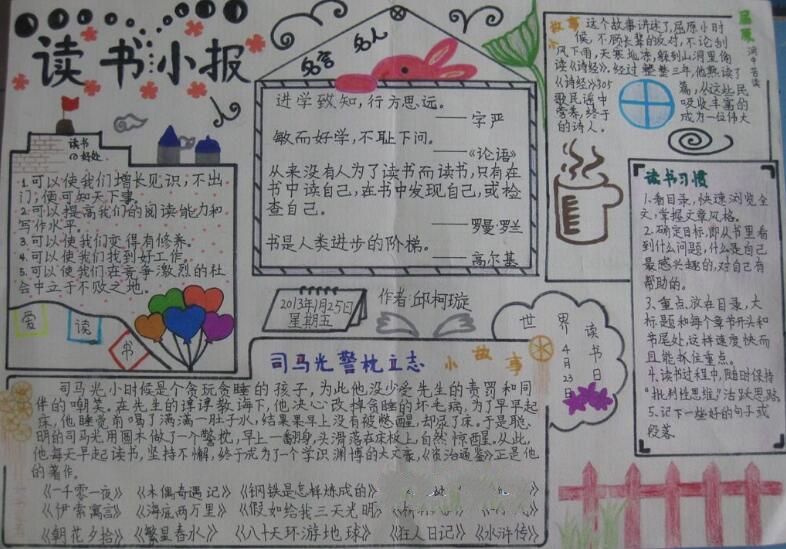 读书小报
读书
的好处
1.可以使我们增长见识,不出
门,便可知天下事。
2.可以提高我们的阅读能力和
写作水平。
3.可以使我们变得有修养。
4.可以使我们找到好工作。
5.可以使我们在竞争激烈的社
会中立于不败之地。
爱
读
书
名人
名言
进学致知,行方思远。
——字严
敏而好学,不耻下问。
——《论语》
从来没有人为了读书而读书,只有在
书中读自己,在书中发现自己,或检
查自己。
——罗曼·罗兰
书是人类进步的阶梯。
——高尔基
2013年1月25日
星期五
作者:邱柯璇
故事
屈原
洞中苦读
这个故事讲述了屈原小时
候,不顾长辈的反对,不论刮
风下雨,天寒地冻,躲到山洞里偷
读《诗经》。经过整整三年,他熟读了
《诗经》305篇,从这些民
歌民谣中吸收丰富的
营养,终于成为一位伟大
的诗人。
读书习惯
1.看目录,快速浏览全
文,掌握文章风格。
2.确定目标,即从书里看
到什么问题,什么是自己
最感兴趣的,对自己有
帮助的。
3.重点放在目录,大
标题和每个章节开头和
书尾处,这样速度快而
且能抓住重点。
4.读书过程中,随时保持
批判性思维,活跃思路
5.记下一些好的句子或
段落.
世界
读书日
4月23日
司马光警枕立志
小故事
司马光小时候是个贪玩贪睡的孩子,为此他没少受先生的责罚和同
伴的嘲笑。在先生的谆谆教诲下,他决心改掉贪睡的坏毛病,为了早早起
床,他睡觉前喝了满满一肚子水,结果早上没有被憋醒,却尿了床。于是聪
明的司马光用圆木做了一个警枕,早上一翻身,头滑落在床板上,自然惊醒,从此,
他每天早起读书,坚持不懈,终于成为了一个学识渊博的大文豪,《资治通鉴》正是他
的著作。
《一千零一夜》《木偶奇遇记》《钢铁是怎样炼成的》
《伊索寓言》《海底两万里》《假如给我三天光明》
《朝花夕拾》《繁星春水》《八十天环游地球》《狂人日记》《水浒传》